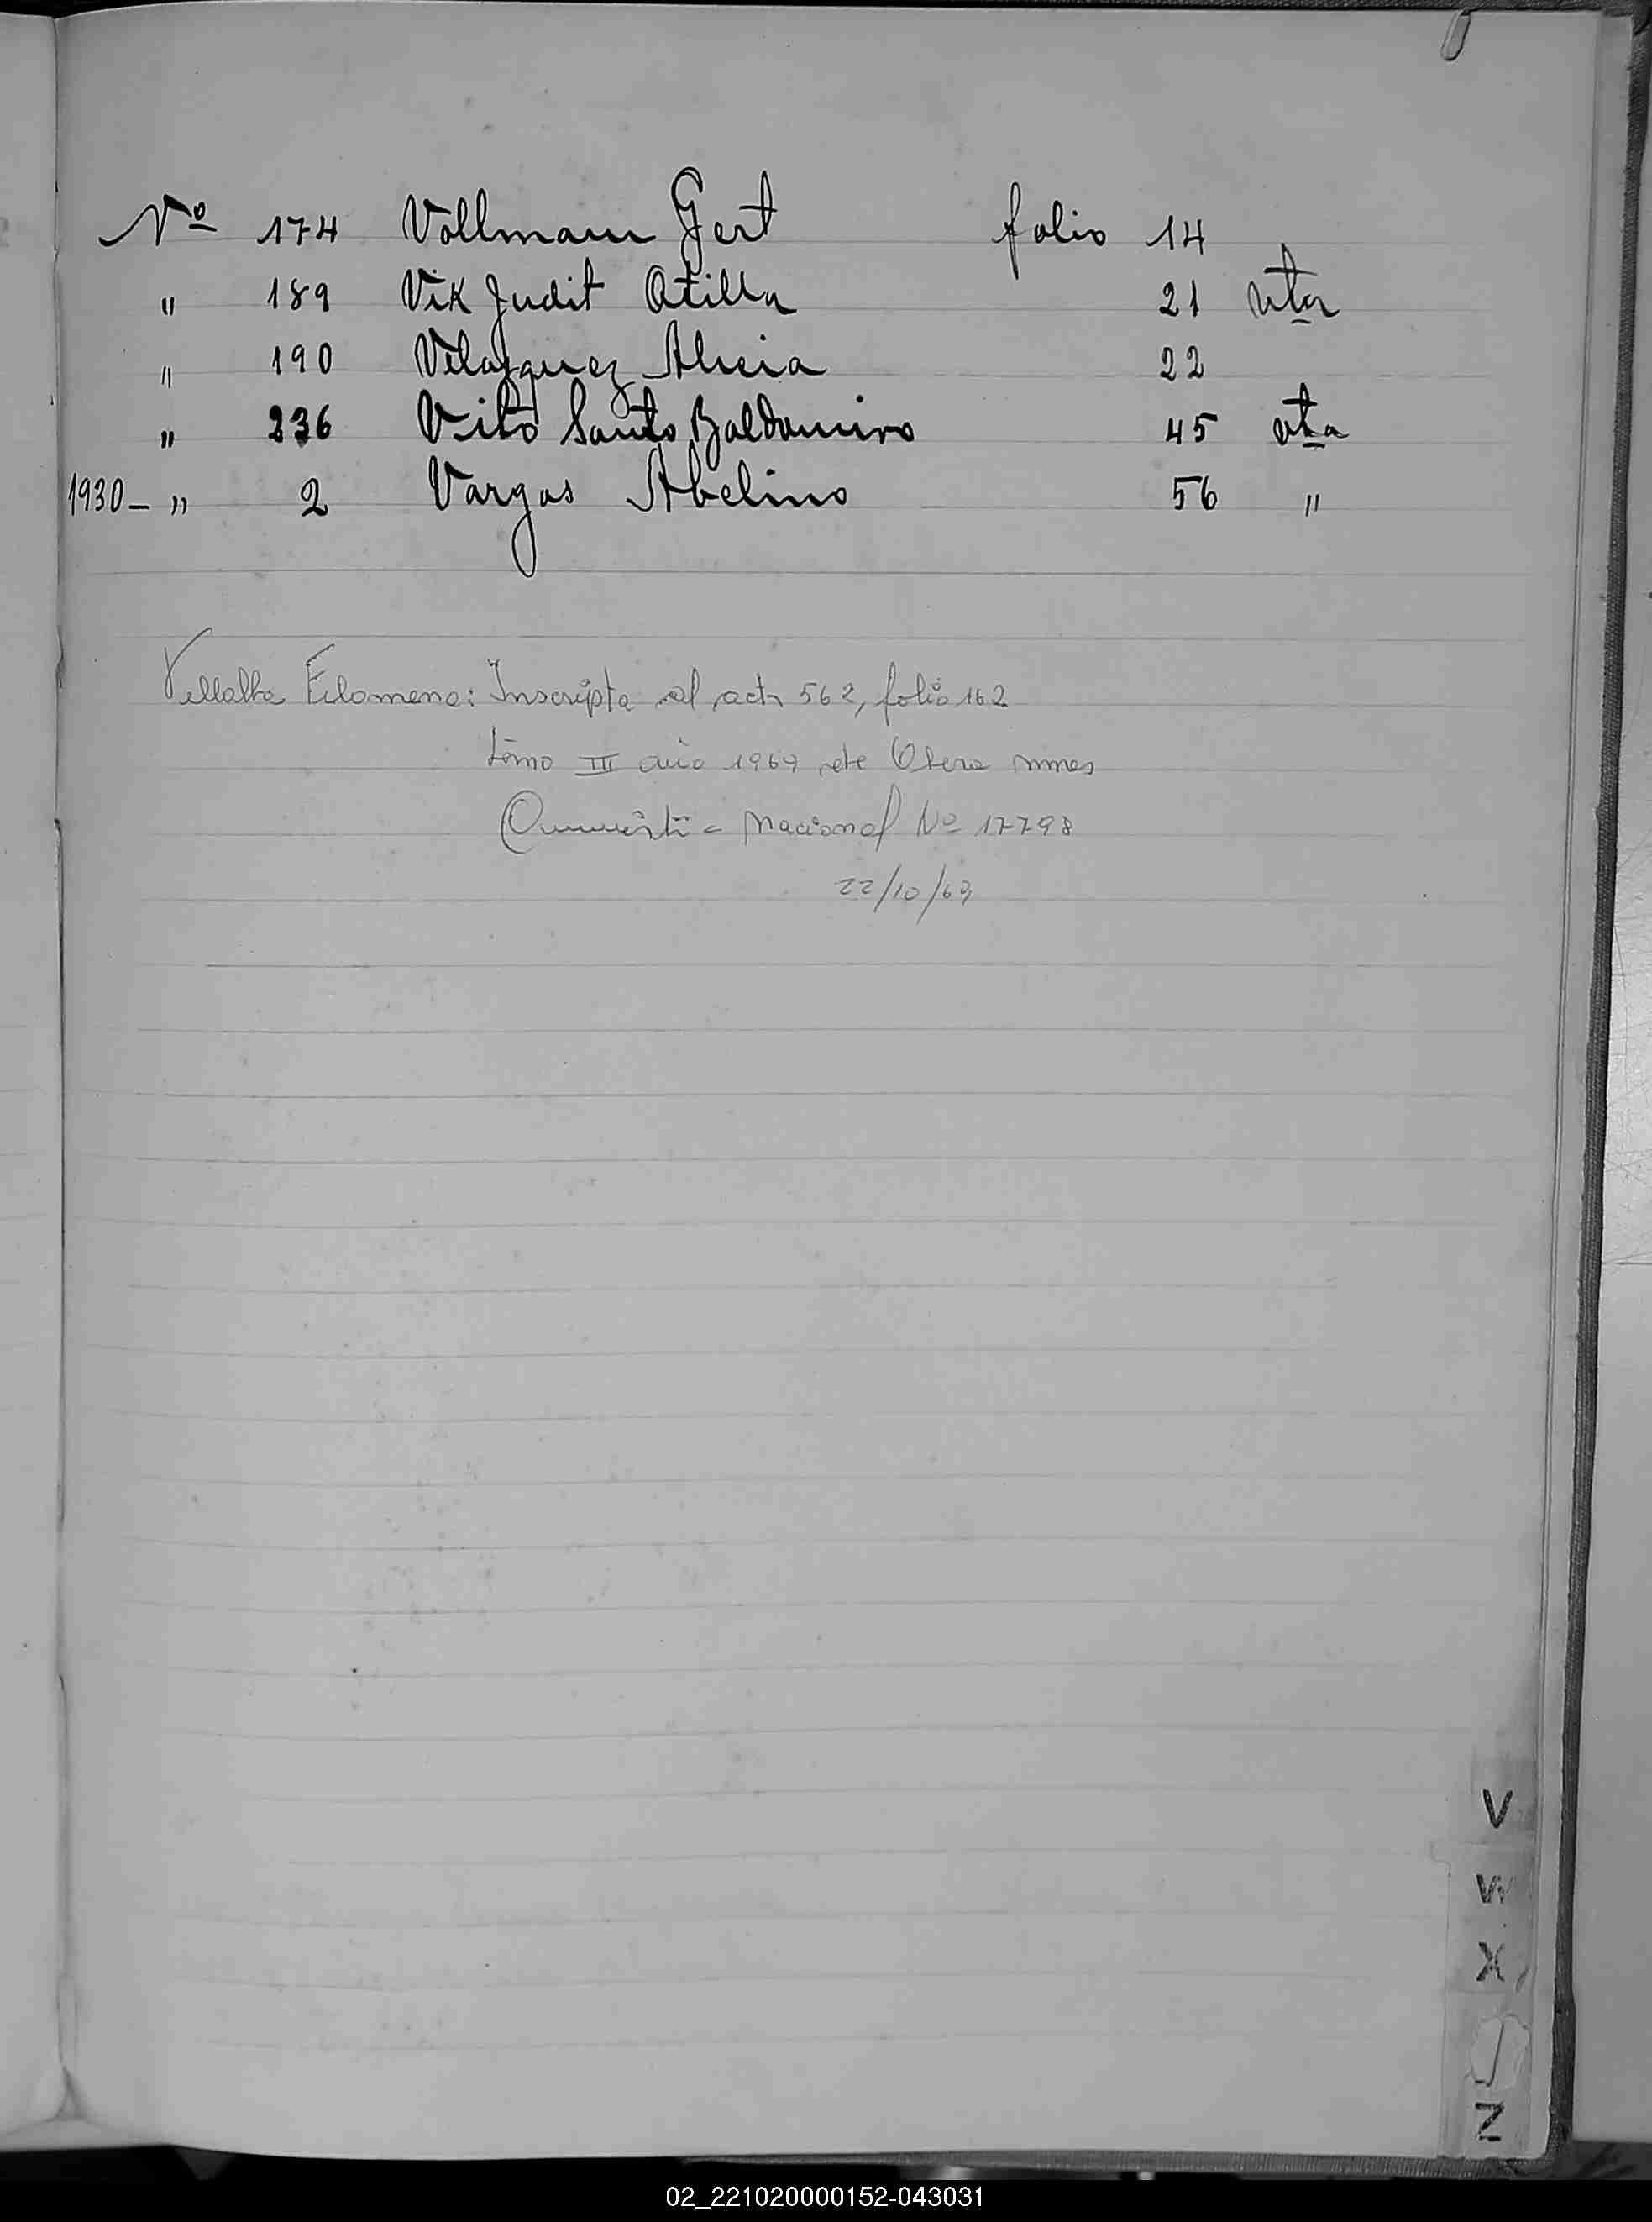 Nº 174 Vollmann Gert folio 14
" 189 Vik Judit Otilla 21 vta
" 190 Velazquez Alicia 22
" 236 Vito Santo Baldomiro 45 vta
1930 - " 2 Vargas Abelino 56 "
Villalba Filomena: Inscripta al acta 562, folio 162
tomo III año 1969 de Obera mnes
Nacional Nº 17798
22/10/69
V
W
X
Z
02_221020000152-043031